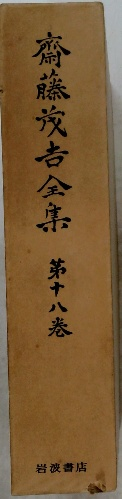 齋藤茂吉全集
第十八巻
岩波書店